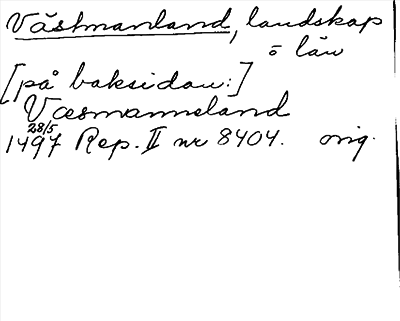 Västmanland, landskap
o län
[på baksidan:]
Væsmanneland
28/5
1497 Rep. II nr 8404. orig.